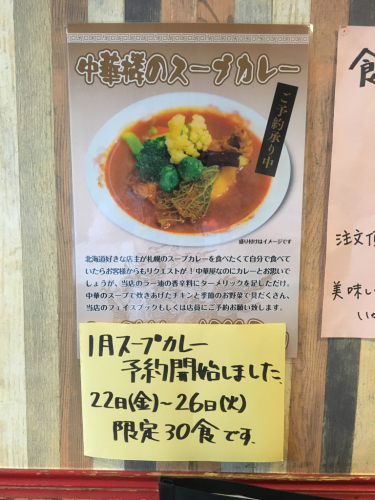 中華樓のスープカレー
ご予約承り中
盛り付けはイメージです
北海道好きな店主が札幌のスープカレーを食べたくて自分で食べて
いたらお客様からもリクエストが！中華屋なのにカレーとお思いで
しょうが、当店のラー油の香辛料にターメリックを足しただけ。
中華のスープで炊きあげたチキンと季節のお野菜で具だくさん。
当店のフェイスブックもしくは店員にご予約お願い致します。
1月スープカレー
予約開始しました。
22日(金)～26日(火)
限定30食です.
食
注文
美味しい